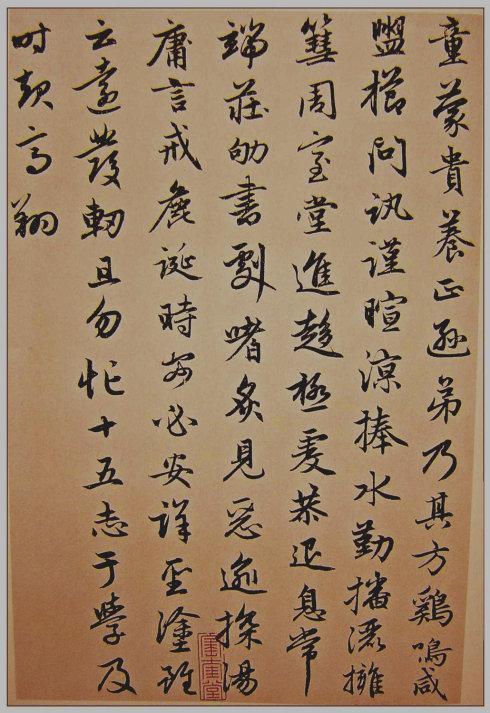 童蒙貴養正遜弟乃其方鷄鳴咸
盥櫛問訊謹暄涼捧水勤播灑擁
篲周室堂進趨極虔恭退息常
端莊劬書劇嗜炙見惡逾探湯
庸言戒麄誕時行必安詳聖塗雖
云遠發軔且勿忙十五志于學及
时起高翔